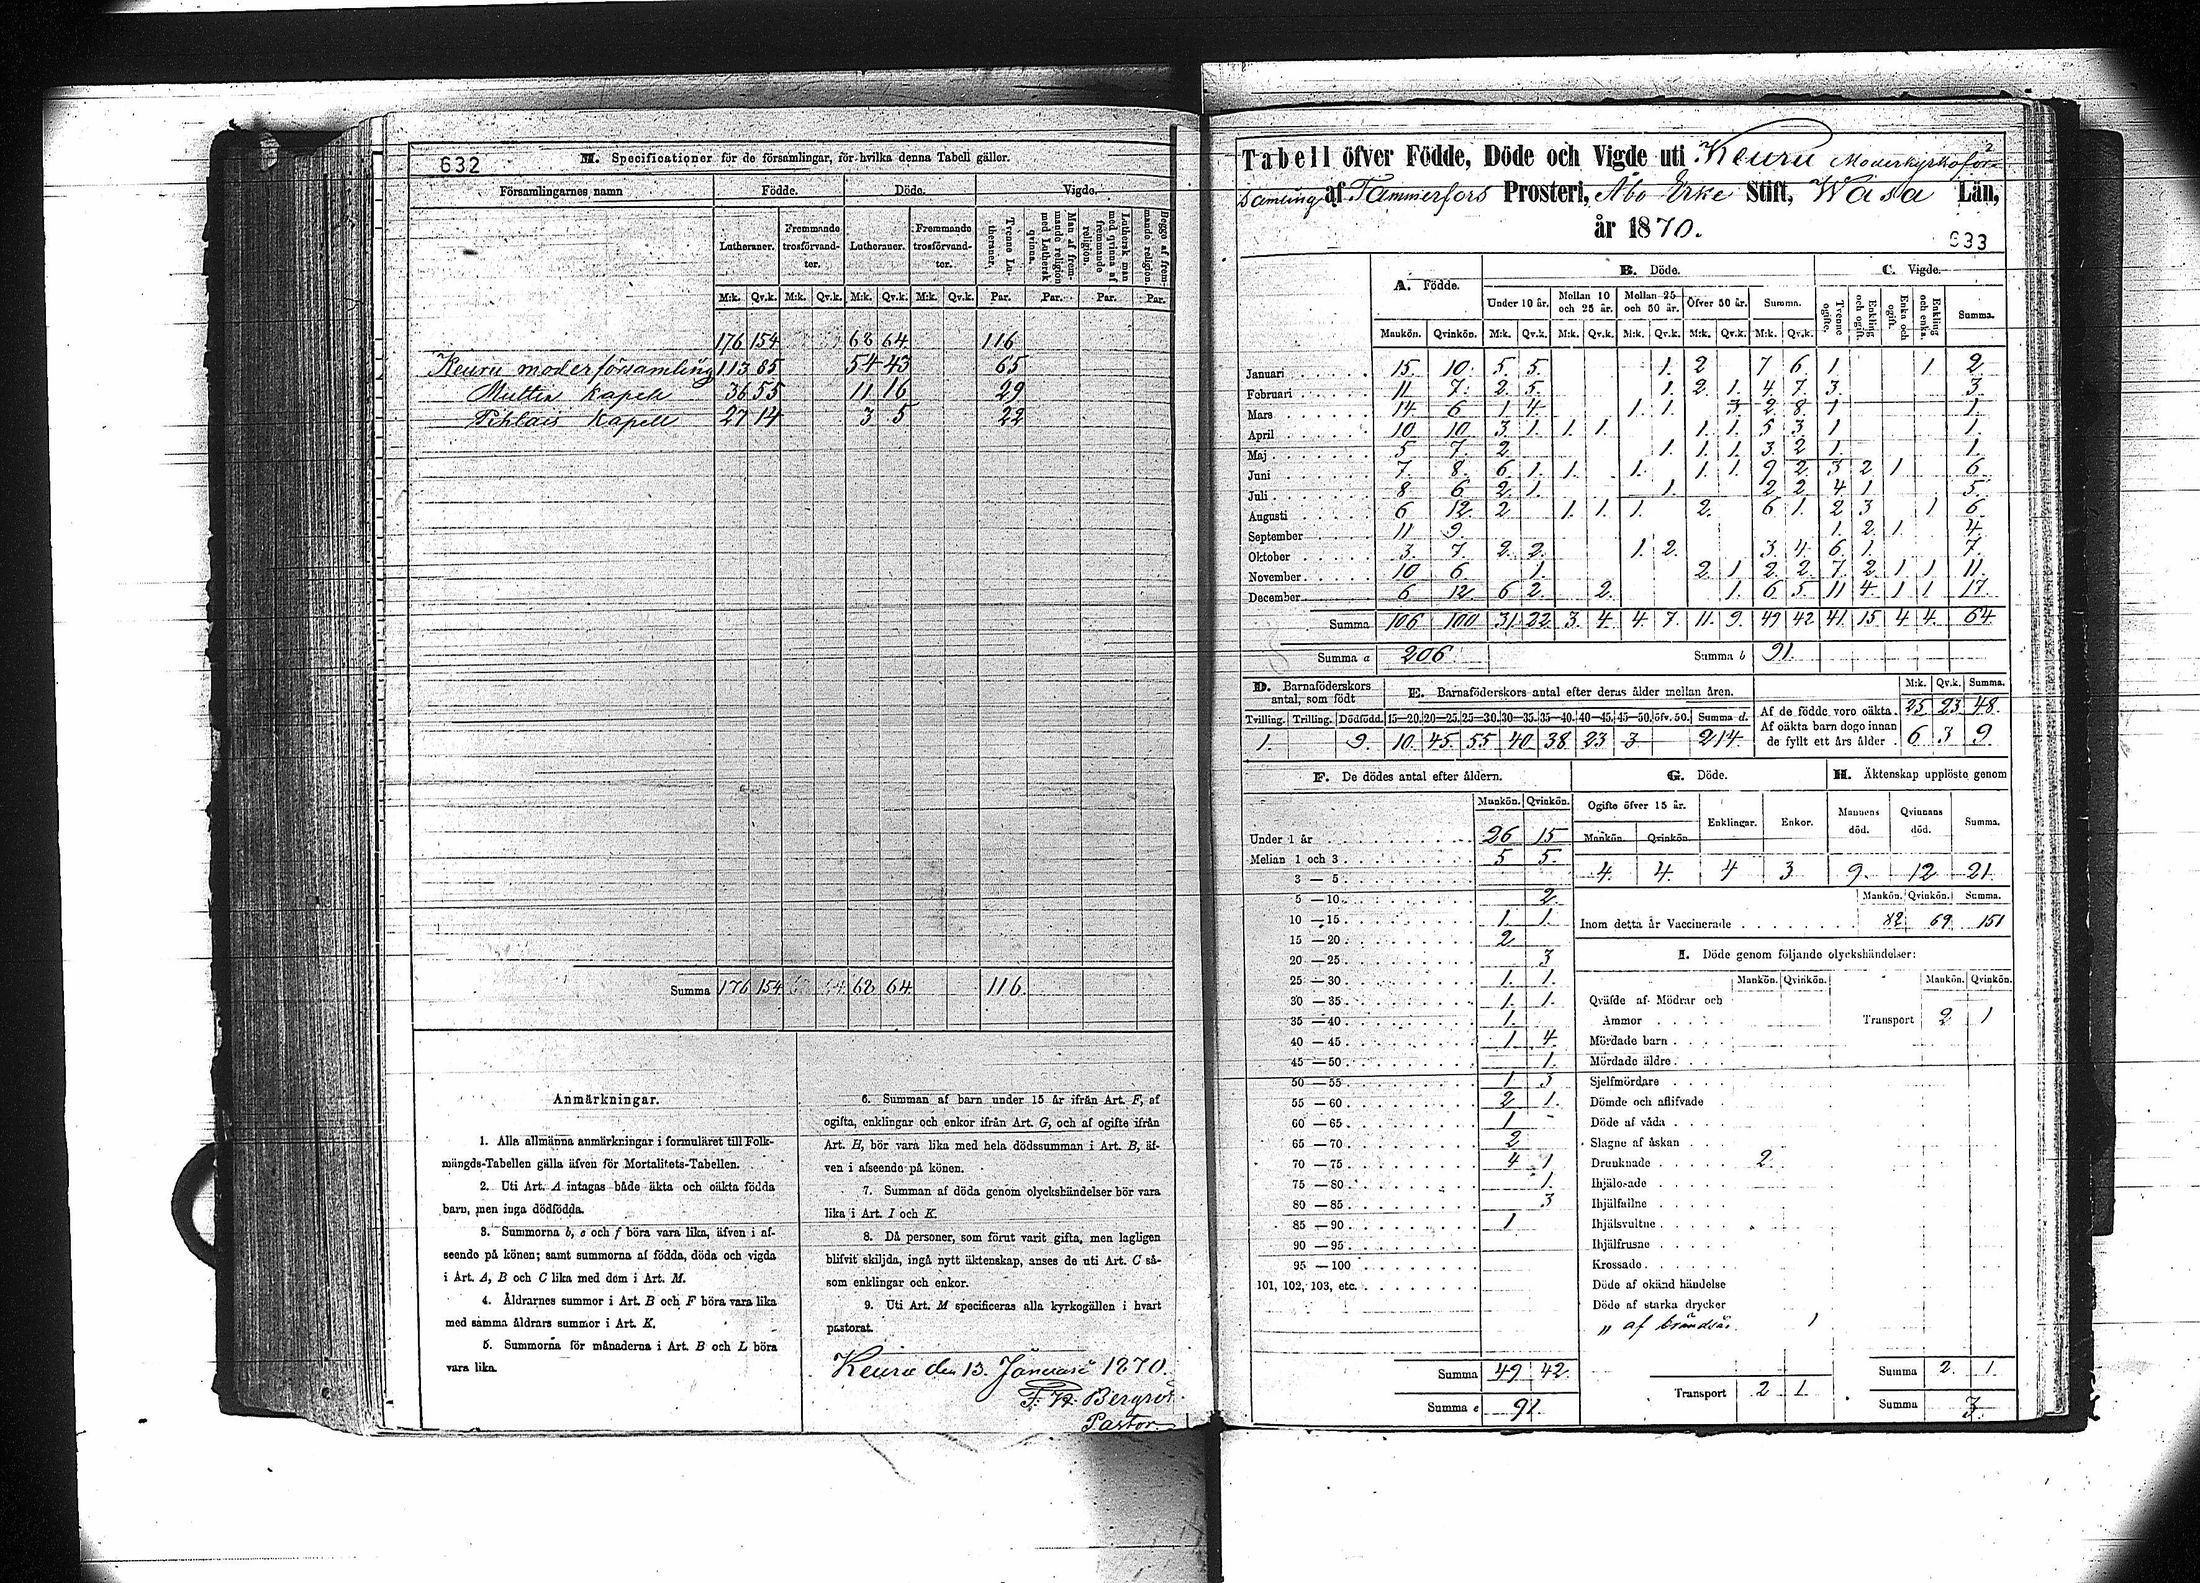 632
M. Specificationer för de församlingar, för hvilka denna Tabell gäller.
Församlingarnes namn Födde. Döde. Vigde.
Lutheraner. Fremmande trosförvandter. Lutheraner. Fremmande trosförvandter. Tvenne Lutheraner. Man af fremmande religion med Luthersk qvinna. Luthersk man med qvinna af fremmande religion. Begge af fremmande religion.
M:k. Qv.k. M:k. Qv.k. M:k. Qv.k. M:k. Qv.k. Par. Par. Par. Par.
176 154 68 64 116
Keuru moderförsamling 113 85 54 43 65
Multia Kapell 36 55 11 16 29
Pihlais Kapell 27 14 3 5 22
Summa 176 154 68 64 116
Anmärkningar.
1. Alla allmänna anmärkningar i formuläret till Folk-
mängds-Tabellen gälla äfven för Mortalitets-Tabellen.
2. Uti Art. A intagas både äkta och oäkta födda
barn, men inga dödfödda.
3. Summorna b, e och f böra vara lika, äfven i af-
seende på könen; samt summorna af födda, döda och vigda
i Art. A, B och C lika med dem i Art. M.
4. Åldrarnes summor i Art. B och F böra vara lika
med samma åldrars summor i Art. K.
5. Summorna för månaderna i Art. B och L böra
vara lika.
6. Summan af barn under 15 år ifrån Art. F, af
ogifta, enklingar och enkor ifrån Art. G, och af ogifte ifrån
Art. H, bör vara lika med hela dödssumman i Art. B, äf-
ven i afseende på könen.
7. Summan af döda genom olyckshändelser bör vara
lika i Art. I och K.
8. Då personer, som förut varit gifta, men lagligen
blifvit skiljda, ingå nytt äktenskap, anses de uti Art. C så-
som enklingar och enkor.
9. Uti Art. M specificeras alla kyrkogällen i hvart
pastorat.
Keuru den 13. Januari 1870.
Pastor.
Tabell öfver Födde, Döde och Vigde uti Keuru Moderkyrkoför-
samling af Tammerfors Prosteri, Åbo Erke Stift, Wasa Län,
år 1870.
633
A. Födde. B. Döde. C. Vigde.
Under 10 år. Mellan 10 och 25 år. Mellan 25 och 50 år. Öfver 50 år. Summa. Tvenne ogifte. Enkling och ogift. Enka och ogift. Enkling och enka. Summa.
Mankön. Qvinkön. M:k. Qv.k. M:k. Qv.k. M:k. Qv.k. M:k. Qv.k. M:k. Qv.k.
Januari 15 10 5 5 1 2 7 6 1 1 2
Februari 11 7 2 5 1 2 1 4 7 3 3
Mars 14 6 1 4 1 1 3 2 8 1 1
April 10 10 3 1 1 1 1 1 5 3 1 1
Maj 5 7 2 1 1 1 3 2 1 1
Juni 7 8 6 1 1 1 1 1 9 2 3 2 1 6
Juli 8 6 2 1 1 2 2 4 1 5
Augusti 6 12 2 1 1 1 2 6 1 2 3 1 6
September 11 9 1 2 1 4
Oktober 3 7 2 2 1 2 3 4 6 1 7
November 10 6 1 2 1 2 2 7 2 1 1 11
December 6 12 6 2 2 1 6 5 11 4 1 1 17
Summa 106 100 31 22 3 4 4 7 11 9 49 42 41 15 4 4 64
Summa a 206 Summa b 91
D. Barnaföderskors antal, som födt
E. Barnaföderskors antal efter deras ålder mellan åren.
Tvilling. Trilling. Dödfödd. 15—20. 20—25. 25—30. 30—35. 35—40. 40—45. 45—50. öfv. 50. Summa d.
1 9 10 45 55 40 38 23 3 214
M:k. Qv.k. Summa.
Af de födde voro oäkta 25 23 48
Af oäkta barn dogo innan
de fyllt ett års ålder 6 3 9
F. De dödes antal efter åldern.
Mankön. Qvinkön.
Under 1 år 26 15
Mellan 1 och 3 5 5
3 — 5
5 — 10 2
10 — 15 1 1
15 — 20 2
20 — 25 3
25 — 30 1 1
30 — 35 1 1
35 — 40 1
40 — 45 1 4
45 — 50 1
50 — 55 1 3
55 — 60 2 1
60 — 65 1
65 — 70 2
70 — 75 4 1
75 — 80 1
80 — 85 3
85 — 90 1
90 — 95
95 — 100
101, 102, 103, etc.
Summa 49 42
Summa e 91
G. Döde.
Ogifte öfver 15 år. Enklingar. Enkor.
Mankön. Qvinkön.
4 4 4 3
H. Äktenskap upplöste genom
Mannens död. Qvinnans död. Summa.
9 12 21
Mankön. Qvinkön. Summa.
Inom detta år Vaccinerade 82 69 151
I. Döde genom följande olyckshändelser:
Mankön. Qvinkön. Mankön. Qvinkön.
Qväfde af Mödrar och
Ammor
Transport 2 1
Mördade barn
Mördade äldre
Sjelfmördare
Dömde och aflifvade
Döde af våda
Slagne af åskan
Drunknade 2
Ihjälosade
Ihjälfallne
Ihjälsvultne
Ihjälfrusne
Krossade
Döde af okänd händelse
Döde af starka drycker
" af brändsår 1
Transport 2 1
Summa 2 1
Summa 3